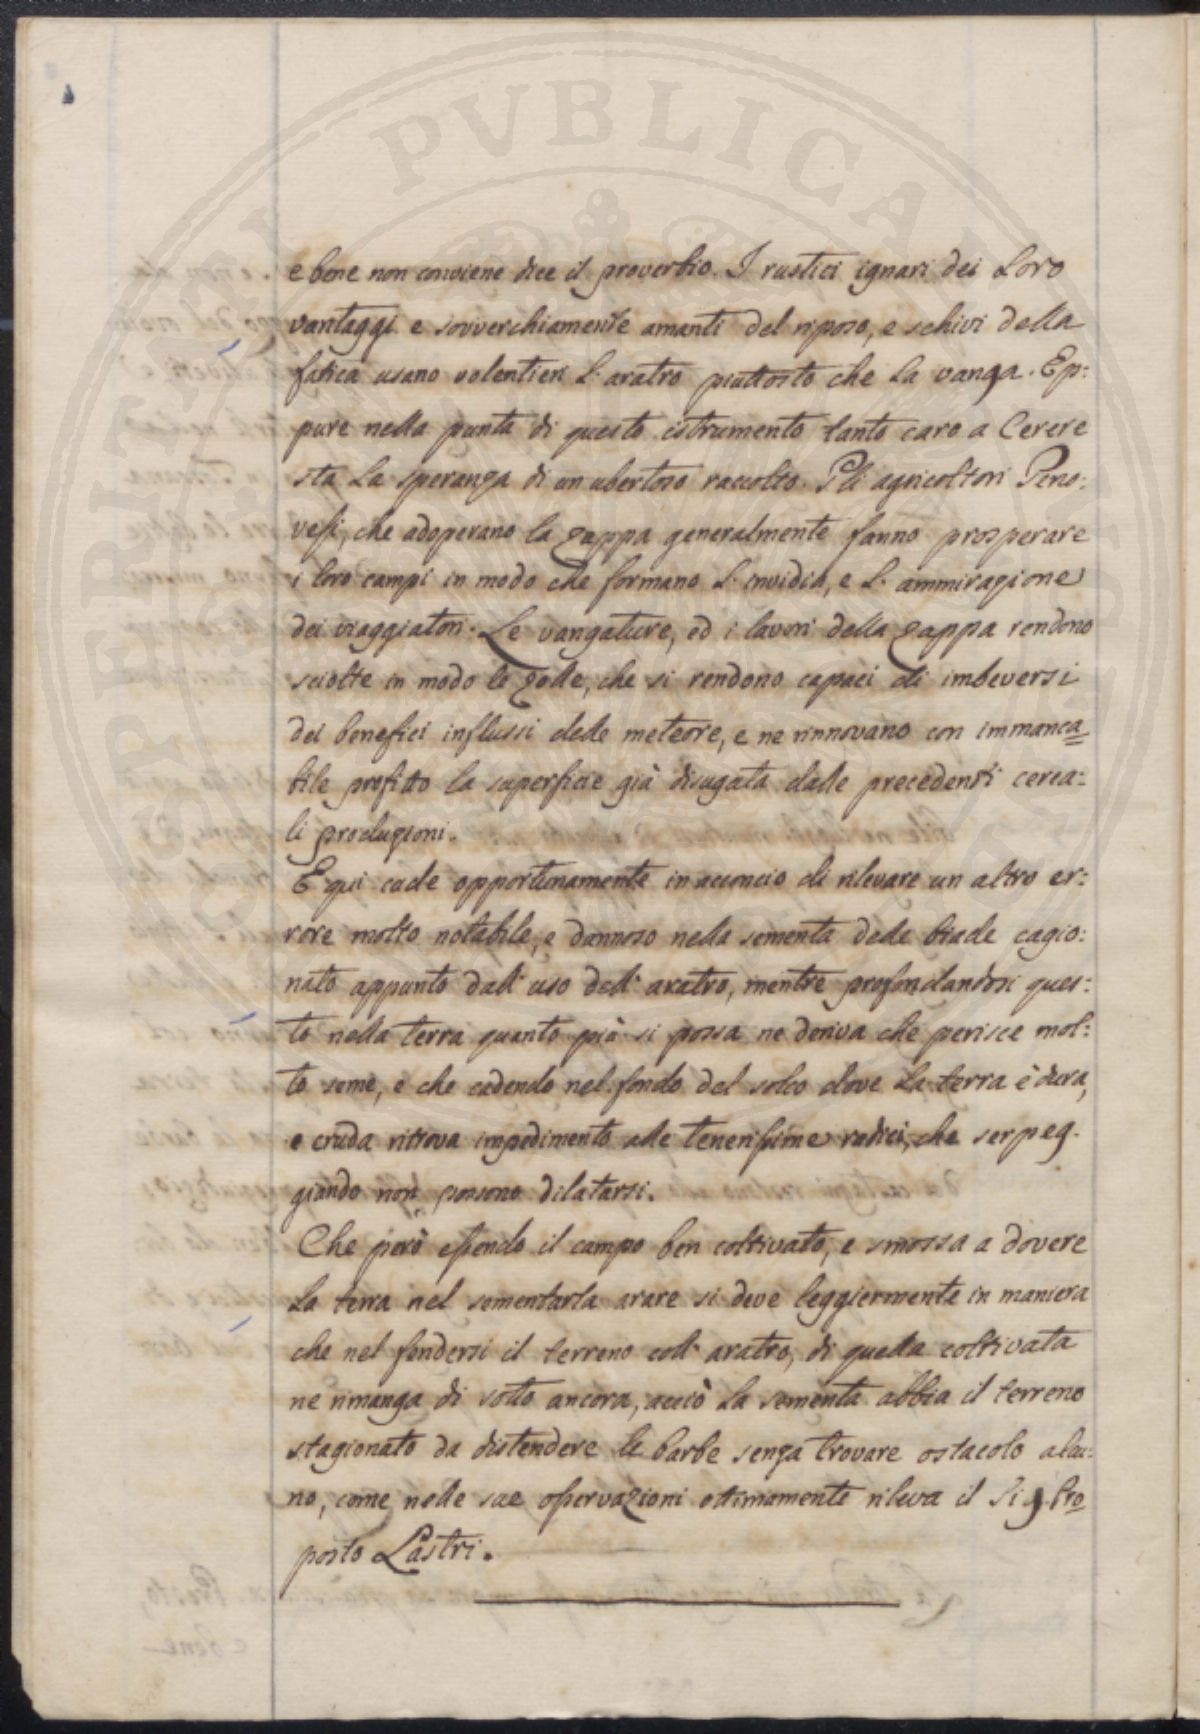 PVBLICAE
e bene non conviene dice il proverbio. I rustici ignari dei Loro
vantaggi e sovverchiamente amanti del riposo, e schivi della
fatica usano volentieri L'aratro piuttosto che la vanga. Ep:
pure nella punta di questo istrumento tanto caro a Cerere
sta La speranza di un ubertoso raccolto. Gli agricoltori Geno:
vesi, che adoperano la zappa generalmente fanno prosperare
i loro campi in modo che formano L'invidia, e L'ammirazione
dei viaggiatori. Le vangature, ed i lavori della zappa rendono
sciolte in modo le zolle, che si rendono capaci di imbeversi
dei benefici influssi delle meteore, e ne rinnovano con immanca=
bile profitto la superficie già disugata dalle precedenti cerea:
li produzioni.
E qui cade opportunamente in acconcio di rilevare un altro er:
rore molto notabile, e dannoso nella sementa delle biade cagio:
nato appunto dall'uso dell'aratro, mentre profondandosi ques:
to nella terra quanto più si possa ne deriva che perisce mol:
to seme, e che cadendo nel fondo del solco dove La terra è dura,
e cruda ritrova impedimento alle tenerissime radici, che serpeg.
giando non possono dilatarsi.
Che però essendo il campo ben coltivato, e smossa a dovere
La terra nel sementarla arare si deve leggiermente in maniera
che nel fendersi il terreno coll'aratro, di quella coltivata
ne rimanga di sotto ancora, acciò La sementa abbia il terreno
stagionato da distendere le barbe senza trovare ostacolo alcu:
no, come nelle sue osservazioni ottimamente rileva il Sig. Pro=
posto Lastri.